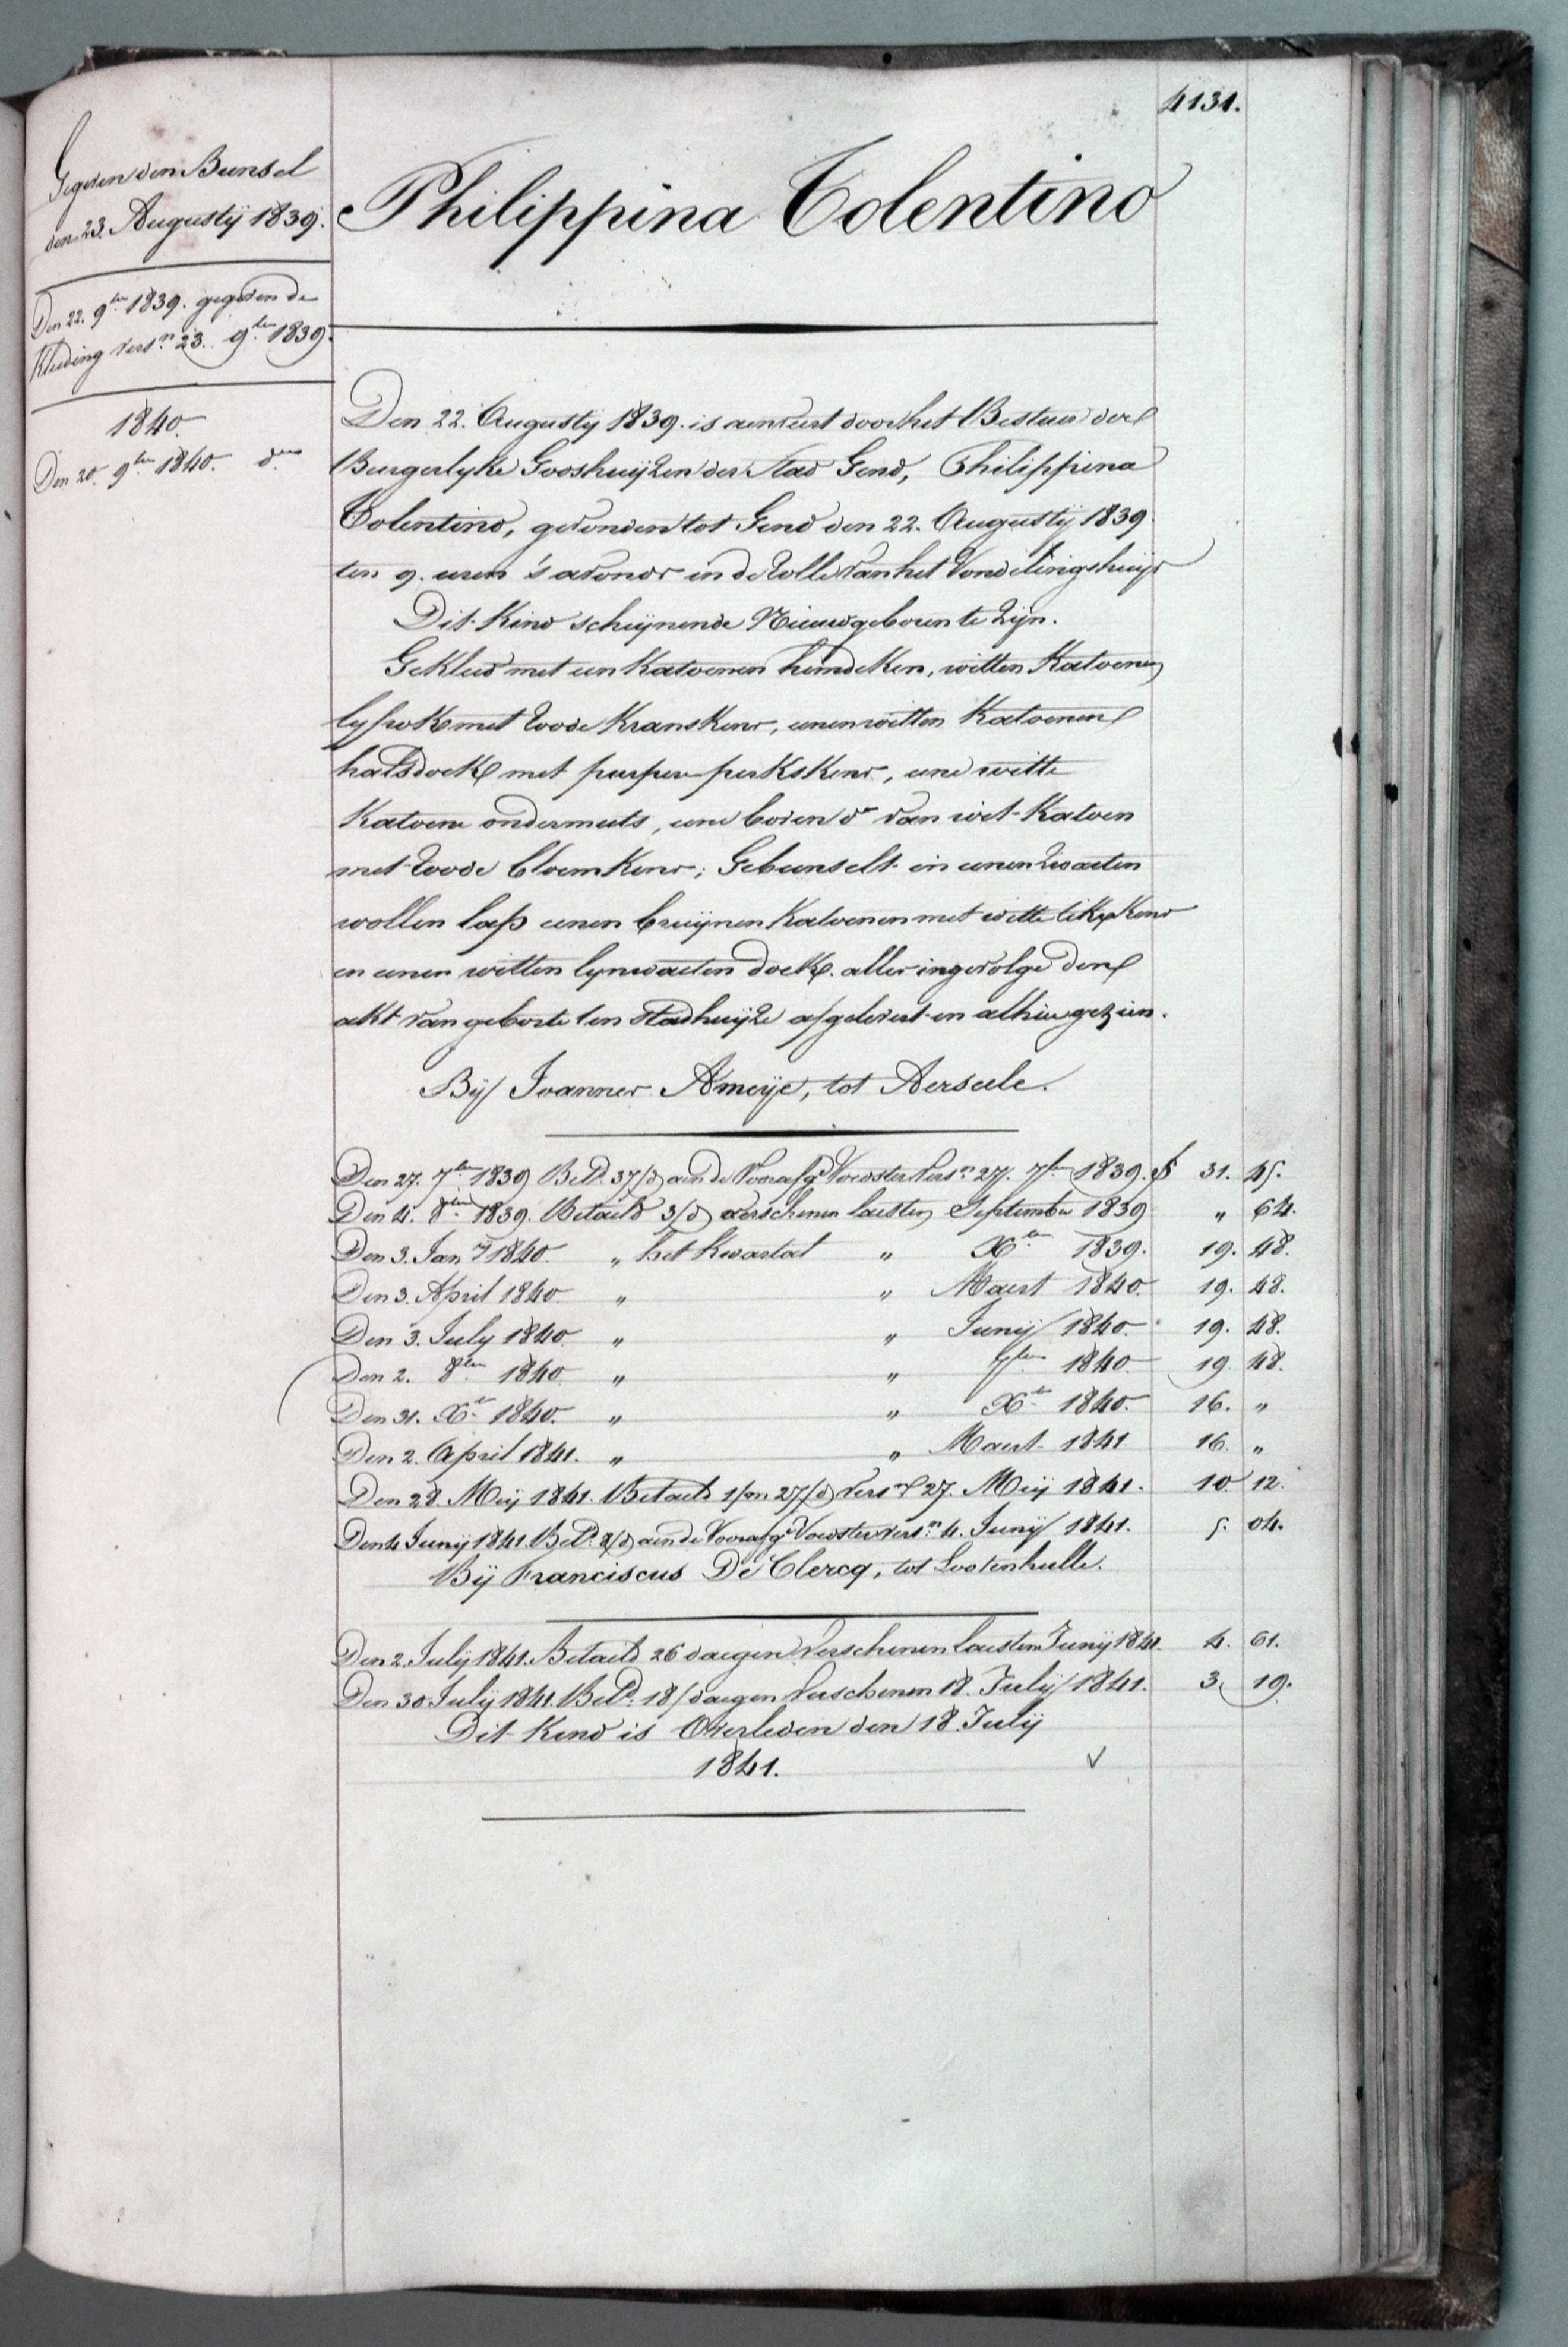 4131.
Gegeven den Bunsel
den 23. Augustij 1839.
Den 22. 9ber 1839. gegeven de
Kleeding vers.n 23. 9ber 1839.
1840.
Den 20. 9ber 1840. do
Philippina Tolentino
Den 22. Augustij 1839. is aenveert door het Bestuer der
Burgerlyke Godshuijzen der Stad Gend, Philippina
Tolentino, gevonden tot Gend den 22. Augustij 1839
ten 9. uren 's avonds in de Rolle van het Vondelingshuijs
Dit Kind scheijnende Nieuwgeboren te zijn.
Gekleed met een Katoenen hemdeken, witten Katoenen
lyfrok met roode Kranskens, eenen witten Katoenen
halsdoek met purper perkskens, eene witte
Katoene ondermuts, eene boven do van wit Katoen
met roode bloemkens; Gebunselt in eenen zwarten
wollen lap eenen bruijnen Katoenen met witte
en eenen witten lynwaeten doek. alles ingevolge den
akt van geborte ten Stadhuijze afgelevert en alhier gezien.
Bij Joannes Ameije, tot Aerseele.
Den 27. 7ber 1839 Betd. 37/d aen de Voorafgde Voedster vers.n 27. 7ber 1839. f 31. 45.
Den 4. 8ber 1839. Betaeld 3/d verschenen laesten September 1839 " 64.
Den 3. Jany 1840. " het kwartael " Xber 1839. 19. 48.
Den 3. April 1840. " " Maert 1840. 19. 48.
Den 3. July 1840. " " Junij 1840. 19. 48.
Den 2. 8ber 1840. " " 7ber 1840 19. 48.
Den 31. Xber 1840. " " Xber 1840. 16. "
Den 2. April 1841. " " Maert 1841 16. "
Den 28. Meij 1841. Betaeld 1/m 27/d vers.n 27. Meij 1841. 10 12.
Den 4 Junij 1841. Betd. 8/d aen de Voorafgde Voedster vers.n 4. Junij 1841. 5. 04.
Bij Franciscus De Clercq, tot Lootenhulle.
Den 2. Julij 1841. Betaeld 26 daegen Verschenen laesten Junij 1841. 4. 61.
Den 30 Julij 1841. Betd. 18/daegen Verschenen 18. Julij 1841. 3. 19.
Dit Kind is Overleden den 18. Julij
1841.